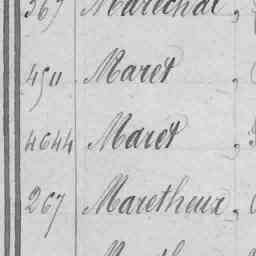 367 Maréchal,
450 Maret,
4644 Maret,
267 Maretheux,